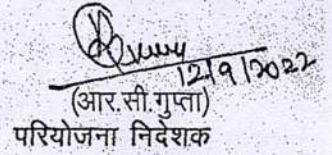 12/9/2022
(आर.सी.गुप्ता)
परियोजना निदेशक